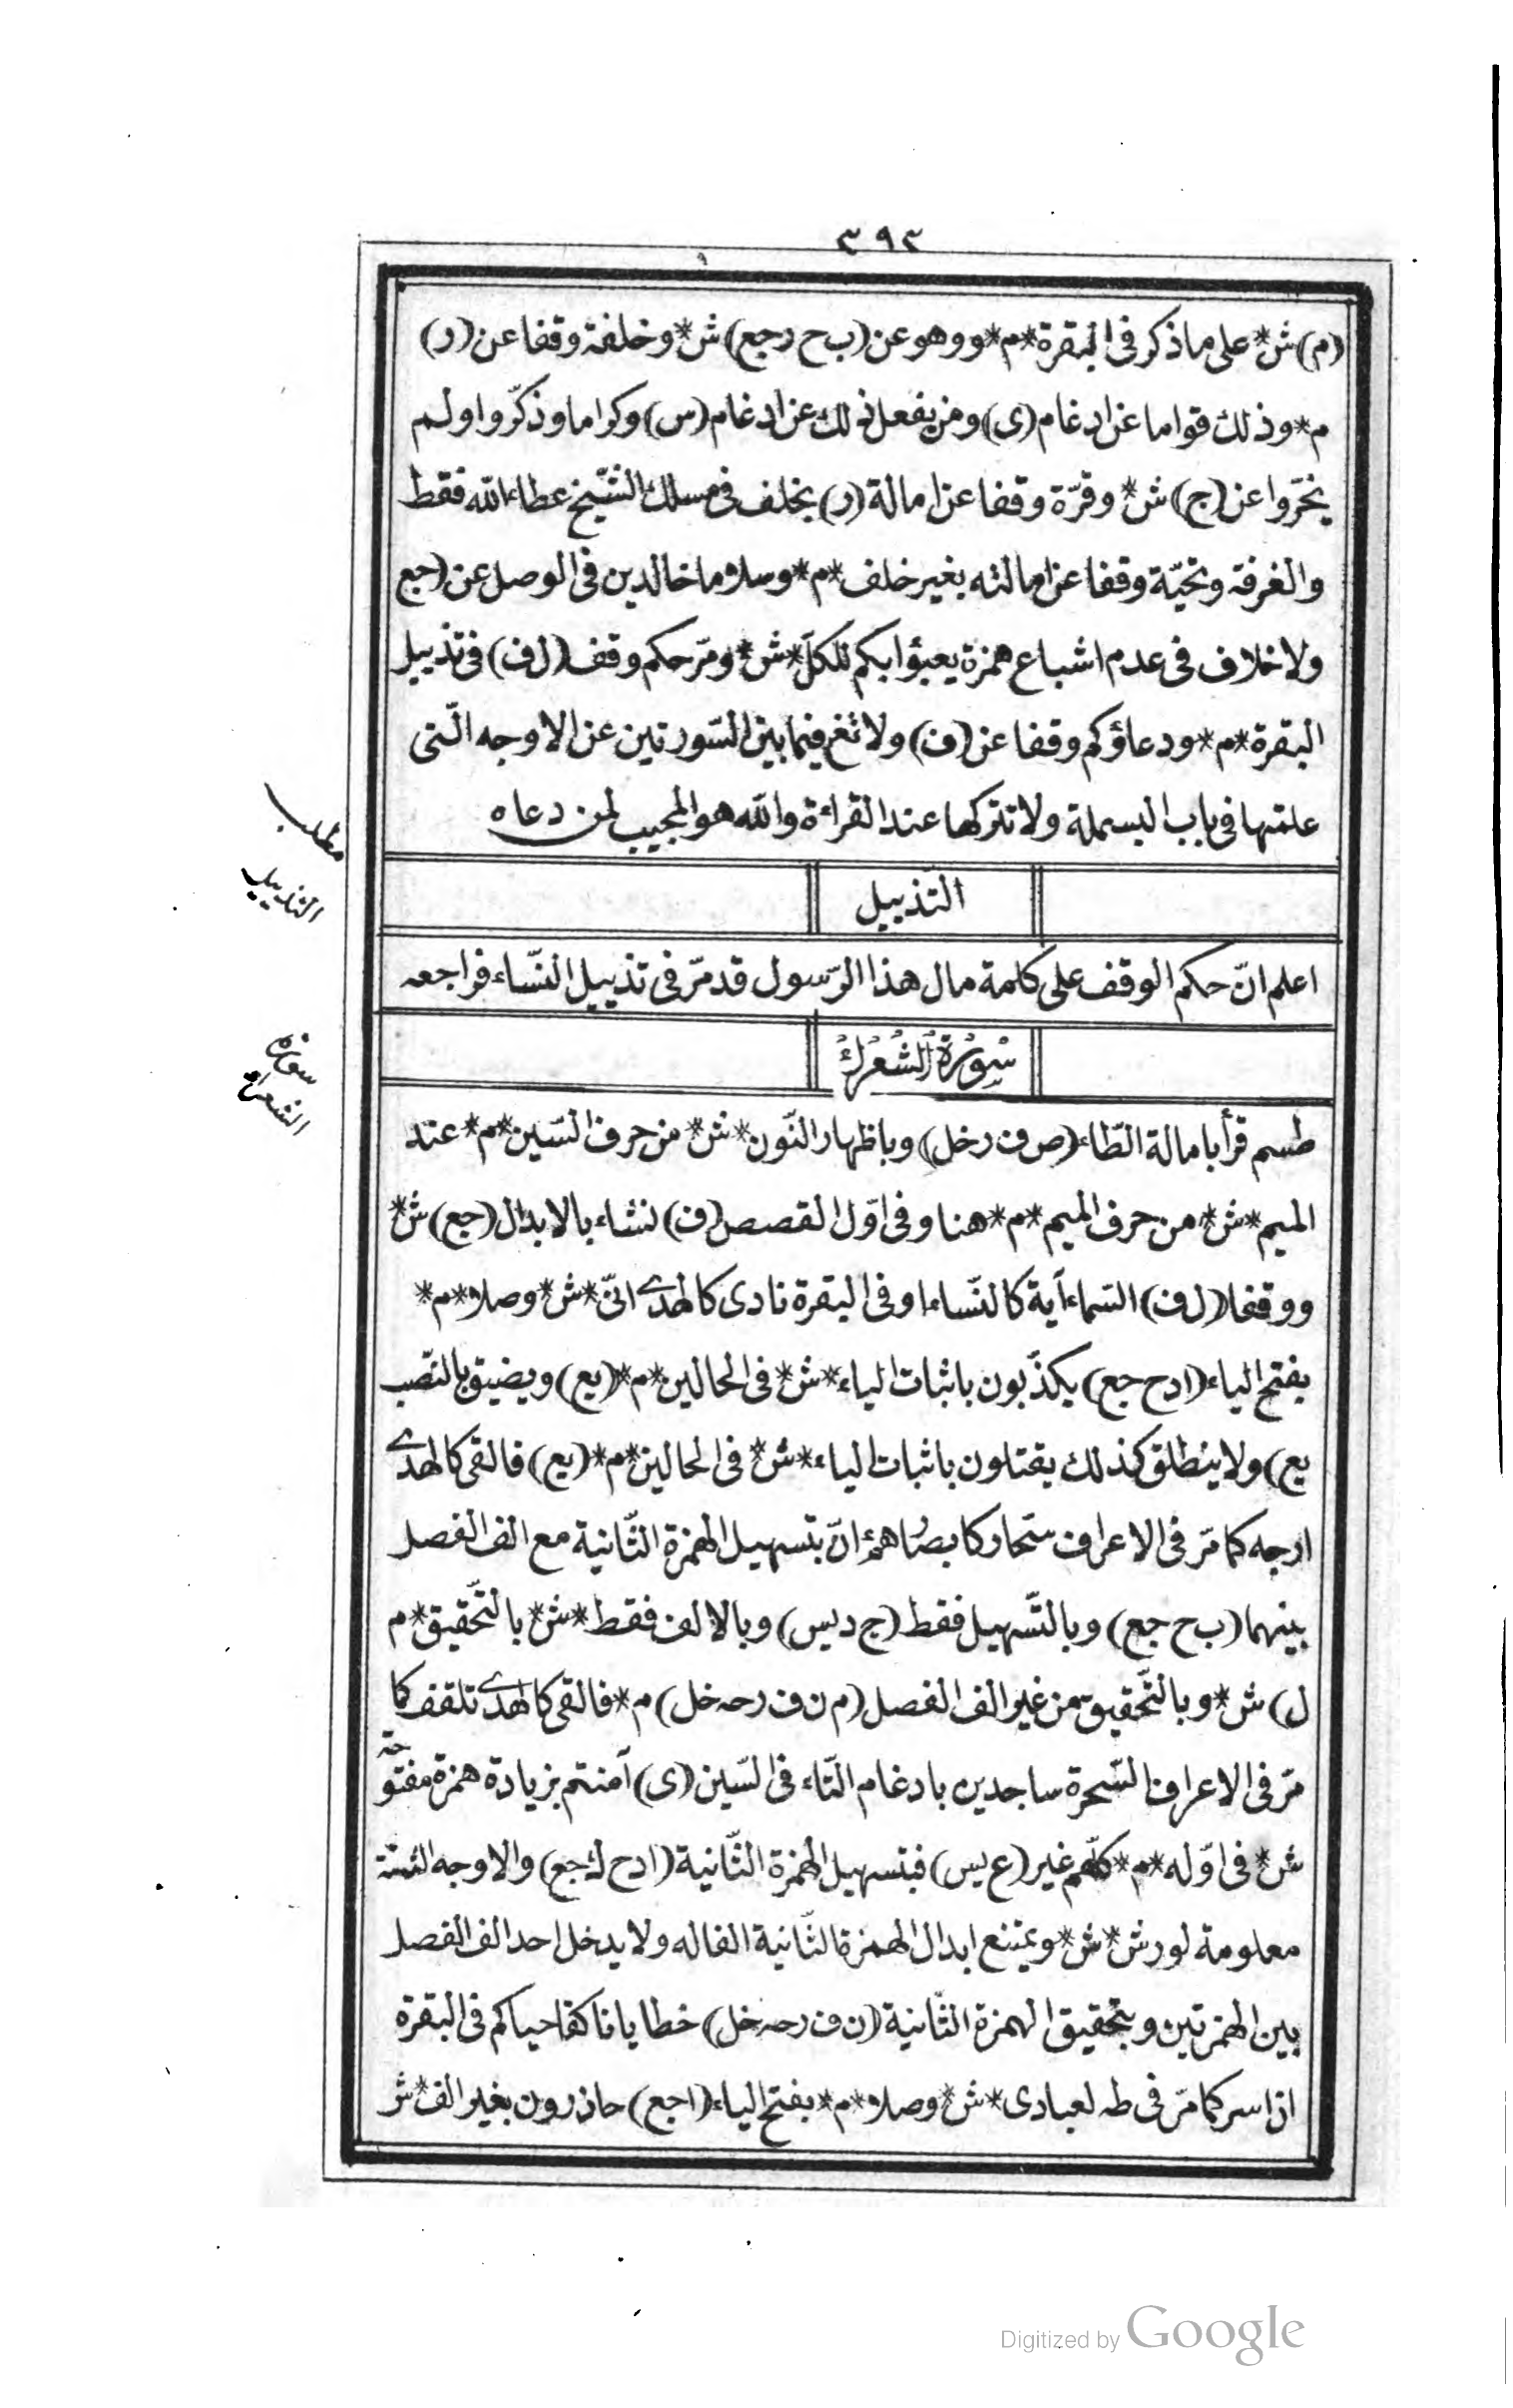 ٣٩٢
(م) ش* على ما ذكر فى البقرة *م* ووهو عن (ب ح رجع) ش* وخلفة وقفا عن (ر)
م* وذلك قواما عن ادغام (ى) ومن يفعل ذلك عن ادغام (س) وكراما وذكّروا ولم
يخرّوا عن (ج) ش* وقرّة وقفا عن امالة (ر) بخلف فى مسلك الشّيخ عطاء الله فقط
والغرفة وتحيّة وقفا عن امالته بغير خلف *م* وسلاما خالدين فى الوصل عن (جع
ولا خلاف فى عدم اشباع همزة يعبؤا بكم للكلّ *ش* ومرّ حكم وقف (ل ف) فى تذييل
البقرة *م* ودعاؤكم وقفا عن (ف) ولا تغر فيما بين السّورتين عن الاوجه الّتى
علمتها فى باب البسملة ولا تتركها عند القراءة والله هو المجيب لمن دعاه
مطلب
التذييل
التّذييل
اعلم انّ حكم الوقف على كلمة مال هذا الرّسول قد مرّ فى تذييل النّساء فراجعه
سورة
الشعراء
سُورَةُ الشُّعَرَاءُ
طسم قرأ بامالة الطّاء (ص ف رخل) وباظهار النّون *ش* من حرف السّين *م* عند
الميم *ش* من حرف الميم *م* هنا وفى اوّل القصص (ف) نشاء بالابدال (جع) ش*
ووقفا (ل ف) السّماء آية كالنّساء او فى البقرة نادى كالهدے انّى *ش* وصلا *م*
بفتح الياء (ا د ح جع) يكذّبون باثبات الياء *ش* فى الحالين *م* (يع) ويضيق بالنّصب
يع) ولا ينطلق كذلك يقتلون باثبات الياء *ش* فى الحالين *م* (يع) فالقى كالهدے
ارجه كما مرّ فى الاعراف سحّار كابصارهم ائنّ بتسهيل الهمزة الثّانية مع الف الفصل
بينهما (ب ح جع) وبالتّسهيل فقط (ج د يس) وبالالف فقط *ش* بالتّحقيق *م
ل) ش* وبالتّحقيق من غير الف الفصل (م ن ف رحه خل) م* فالقى كالهدے تلقف كما
مرّ فى الاعراف السّحرة ساجدين بادغام التّاء فى السّين (ى) آمنتم بزيادة همزة مفتوحة
ش* فى اوّله *م* كلّهم غير (ع يس) فبتسهيل الهمزة الثّانية (ا د ح ك جع) والاوجه الثلثة
معلومة لورش *ش* ويمتنع ابدال الهمزة الثّانية الفا له ولا يدخل احد الف الفصل
بين الهمزتين وبتحقيق الهمزة الثّانية (ن ف رحه خل) خطايانا كفاحياكم فى البقرة
ان اسر كما مرّ فى طه لعبادى *ش* وصلا *م* بفتح الياء (ا جع) حاذرون بغير الف *ش
Digitized by Google